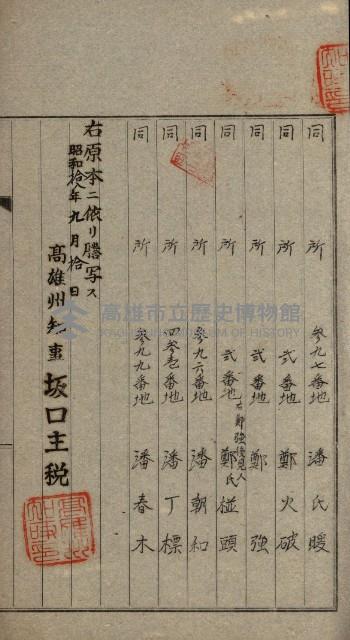 同 所 参九七番地 潘氏暖
同 所 弐番地 鄭火破
同 所 弐番地 鄭強
右鄭強後見人
同 所 弐番地 鄭氏椪頭
同 所 参九六番地 潘朝和
同 所 四参壱番地 潘丁標
同 所 参九九番地 潘春木
右原本ニ依リ謄写ス
昭和拾八年九月拾日
高雄州知事 坂口主税
高雄市立歷史博物館
KAOHSIUNG MUSEUM OF HISTORY